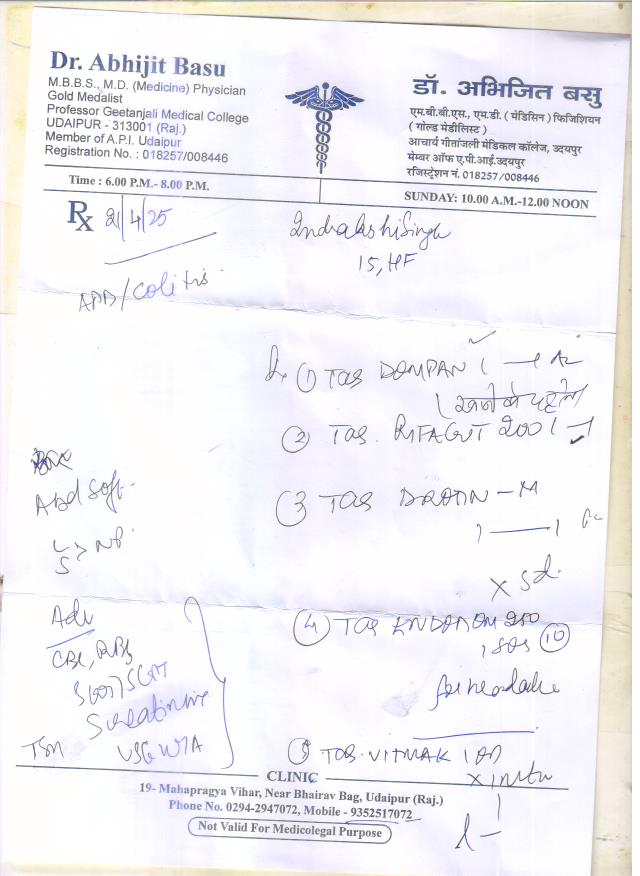 Dr. Abhijit Basu
M.B.B.S., M.D. (Medicine) Physician
Gold Medalist
Professor Geetanjali Medical College
UDAIPUR - 313001 (Raj.)
Member of A.P.I. Udaipur
Registration No. : 018257/008446
डॉ. अभिजित बसु
एम.बी.बी.एस., एम.डी. ( मेडिसिन ) फिजिशियन
( गोल्ड मेडीलिस्ट )
आचार्य गीतांजली मेडिकल कॉलेज, उदयपुर
मेम्बर ऑफ ए.पी.आई.उदयपुर
रजिस्ट्रेशन नं. 018257/008446
Time : 6.00 P.M.- 8.00 P.M.
SUNDAY: 10.00 A.M.-12.00 NOON
Rx 21/4/25
Singh
APD/Colitis
① TAB DOMPAN 1
खाने के पहले
② TAB. RIFAGUT 200 1-1
③ TAB DROTIN-M
1 — 1
x 5d.
Abd soft.
L
S > NP.
Adv
CBC, RBS
SGOT/SGPT
S creatinine
TSH USG W/A
④ TAB 200
1 SOS ⑩
for headache
⑤ TAB. VITMAK 1 OD
CLINIC
19- Mahapragya Vihar, Near Bhairav Bag, Udaipur (Raj.)
Phone No. 0294-2947072, Mobile - 9352517072
Not Valid For Medicolegal Purpose